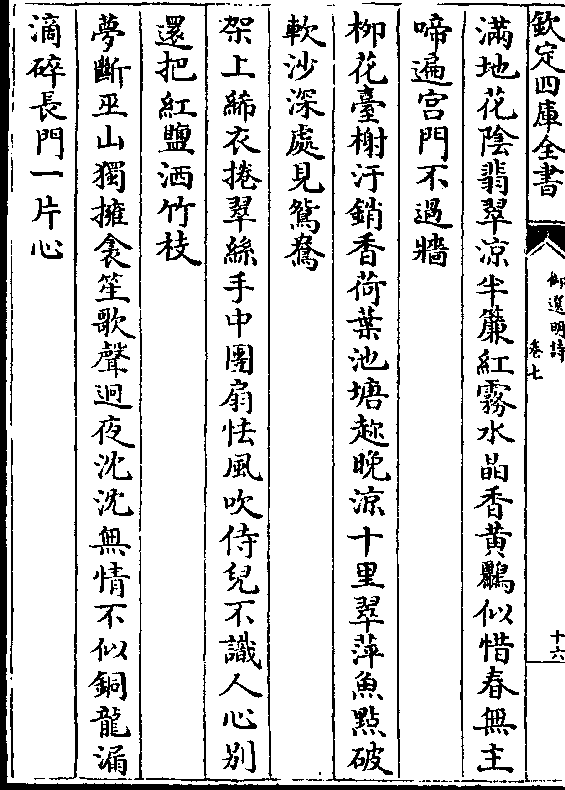 欽定四庫全書
御選明詩
卷七
十六
滿地花陰翡翠涼半簾紅霧水晶香黄鸝似惜春無主
啼遍宫門不過牆
柳花臺榭汙銷香荷葉池塘趂晚凉十里翠萍魚點破
軟沙深處見鴛鴦
架上絺衣捲翠絲手中團扇怯風吹侍兒不識人心别
還把紅鹽洒竹枝
夢斷巫山獨擁衾笙歌聲迥夜沈沈無情不似銅龍漏
滴碎長門一片心